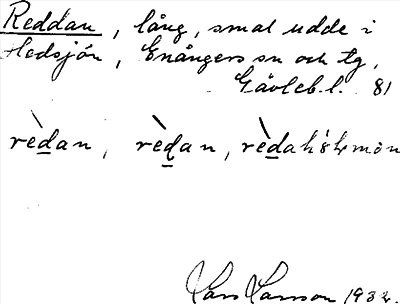 Reddan, lång, smal udde i
Hedsjön, Enångers sn och tg,
Gävleb. l. 81
rèdan, rèdan, rèdahólmən
Lars Larsson 1932.